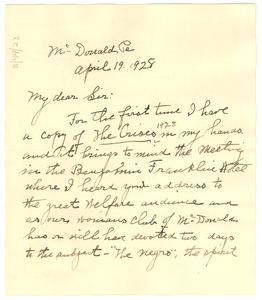 Mc Donald Pa
April 19. 1928
My dear Sir:
For the first time I have
1928
a copy of The Crisis in my hands
and it brings to mind the Meeting
in the Benjamin Franklin Hotel
where I heard your address to
the great Welfare audience and
as our womans Club of Mc Donald
has or will have devoted two days
to the subject - "The Negro", the spirit